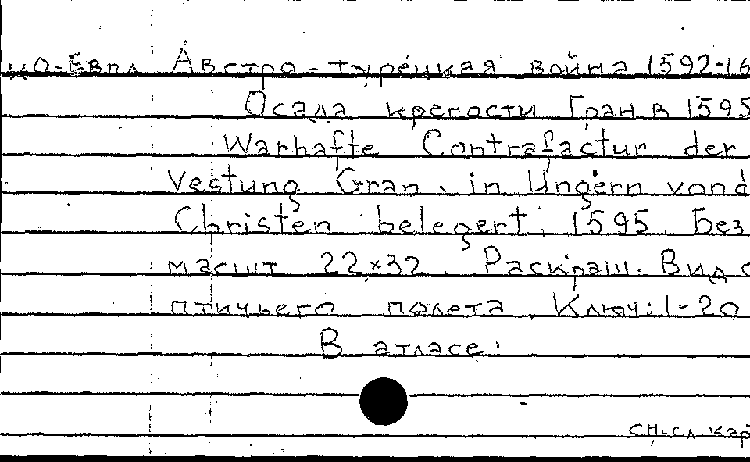 ио-Евпл Австро-турецкая война 1592-16
Осада крепости Гран в 1595
Warhafte Contrafactur der
Vestung Gran, in Ungern vond
Christen belegert, 1595. Без
масшт 22×32. Раскраш. Вид с
птичьего полета. Ключ: 1-20
В атласе:
СН-сл кар